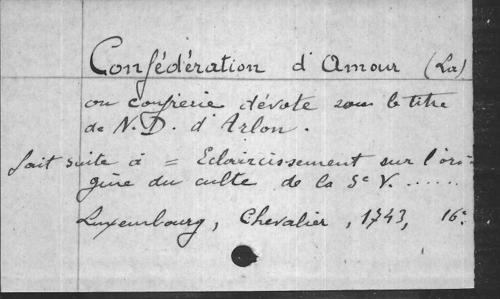 Confédération d'Amour (La)
ou confrerie dévote sous le titre
de N. D. d'Arlon.
fait suite à = Eclaircissement sur l'ori-
gine du culte de la Ste V. ......
Luxembourg, Chevalier, 1743, 16º